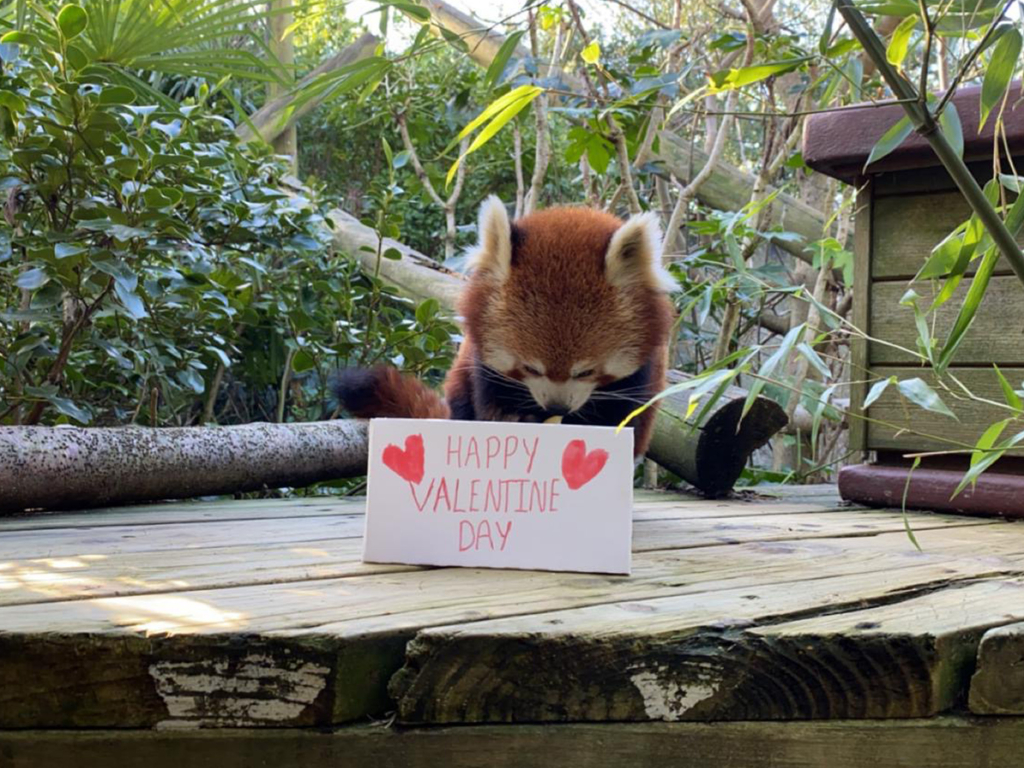 HAPPY
VALENTINE
DAY